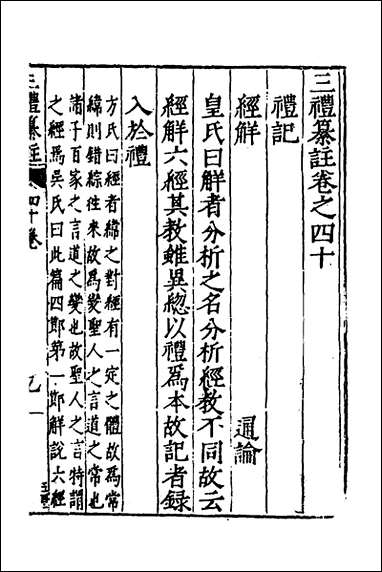 三禮纂註卷之四十
禮記
經解　通論
皇氏曰解者分析之名分析經教不同故云
經解六經其教雖異緫以禮爲本故記者録
入於禮
方氏曰經者緯之對經有一定之體故爲常
緯則錯綜往來故爲變聖人之言道之常也
諸子百家之言道之變也故聖人之言特謂
之經焉吳氏曰此篇四節第一節解說六經
三禮纂註 四十卷